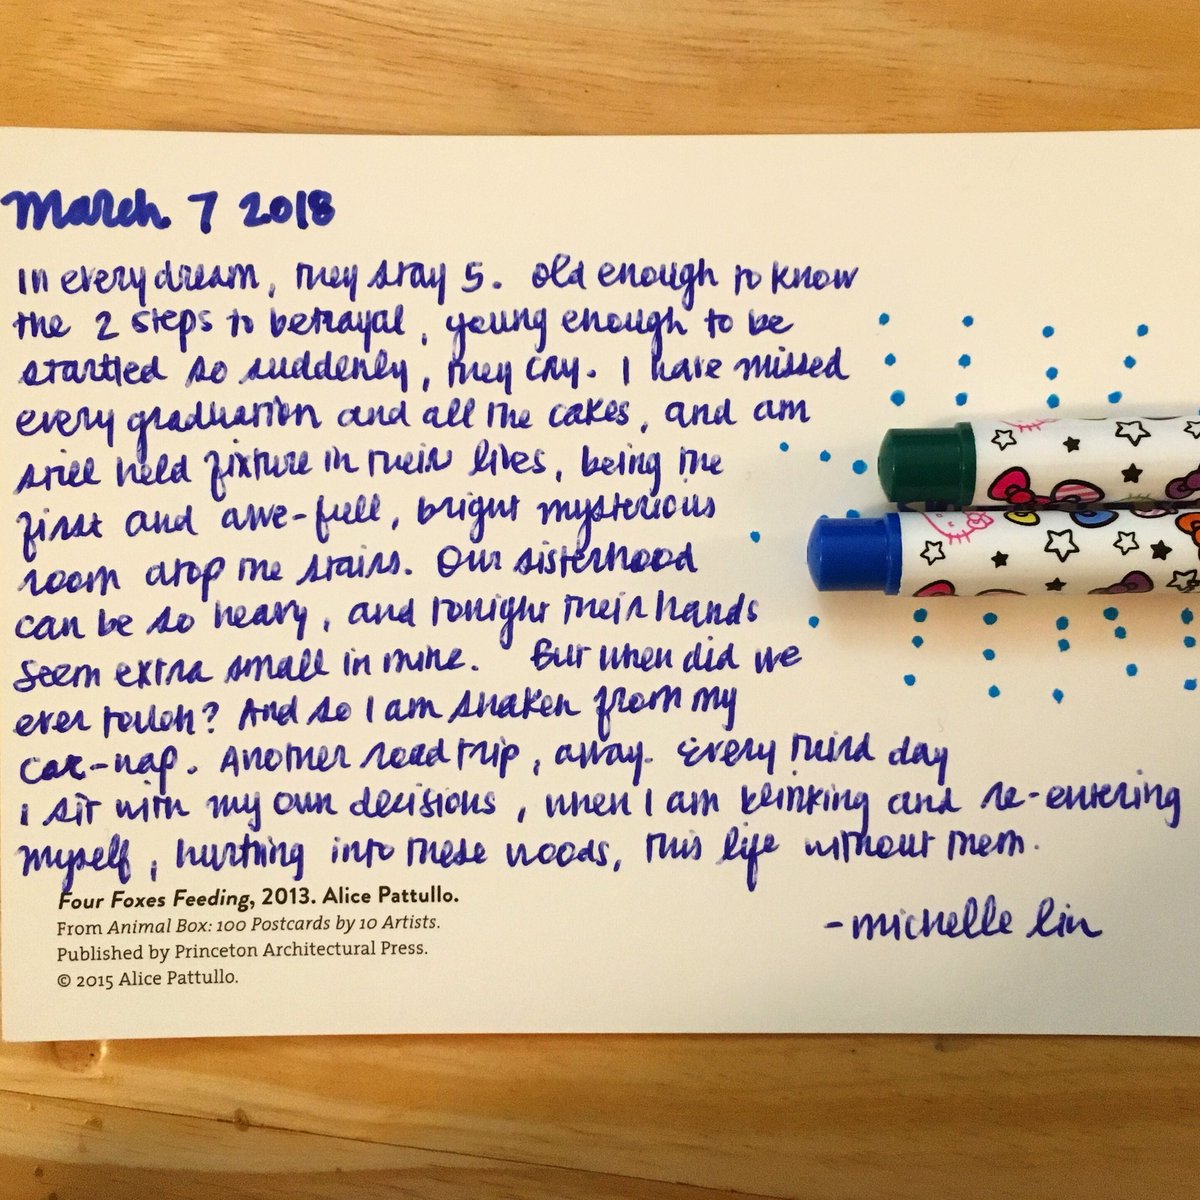 March 7 2018
In every dream, they stay 5. Old enough to know
the 2 steps to betrayal, young enough to be
startled so suddenly, they cry. I have missed
every graduation and all the cakes, and am
still held fixture in their lives, being the
first and awe-full, bright mysterious
room atop the stairs. Our sisterhood
can be so heavy, and tonight their hands
seem extra small in mine. But when did we
ever touch? And so I am shaken from my
car-nap. Another road trip, away. Every third day
I sit with my own decisions, when I am blinking and re-entering
myself, hurtning into these woods, this life without them.
Four Foxes Feeding, 2013. Alice Pattullo.
From Animal Box: 100 Postcards by 10 Artists.
Published by Princeton Architectural Press.
© 2015 Alice Pattullo.
-michelle lin